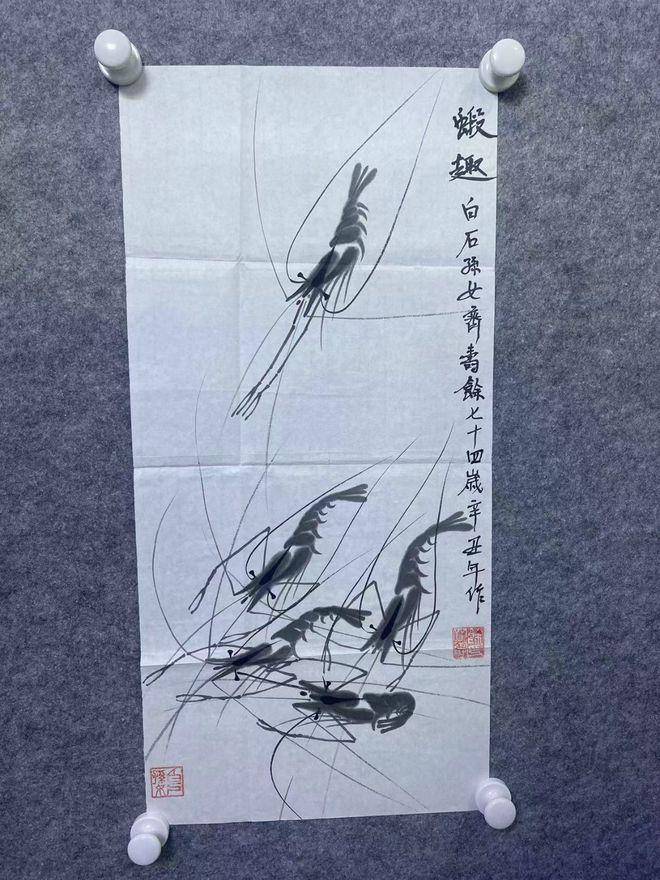 蝦趣
白石孫女齊壽餘七十四歲辛丑年作